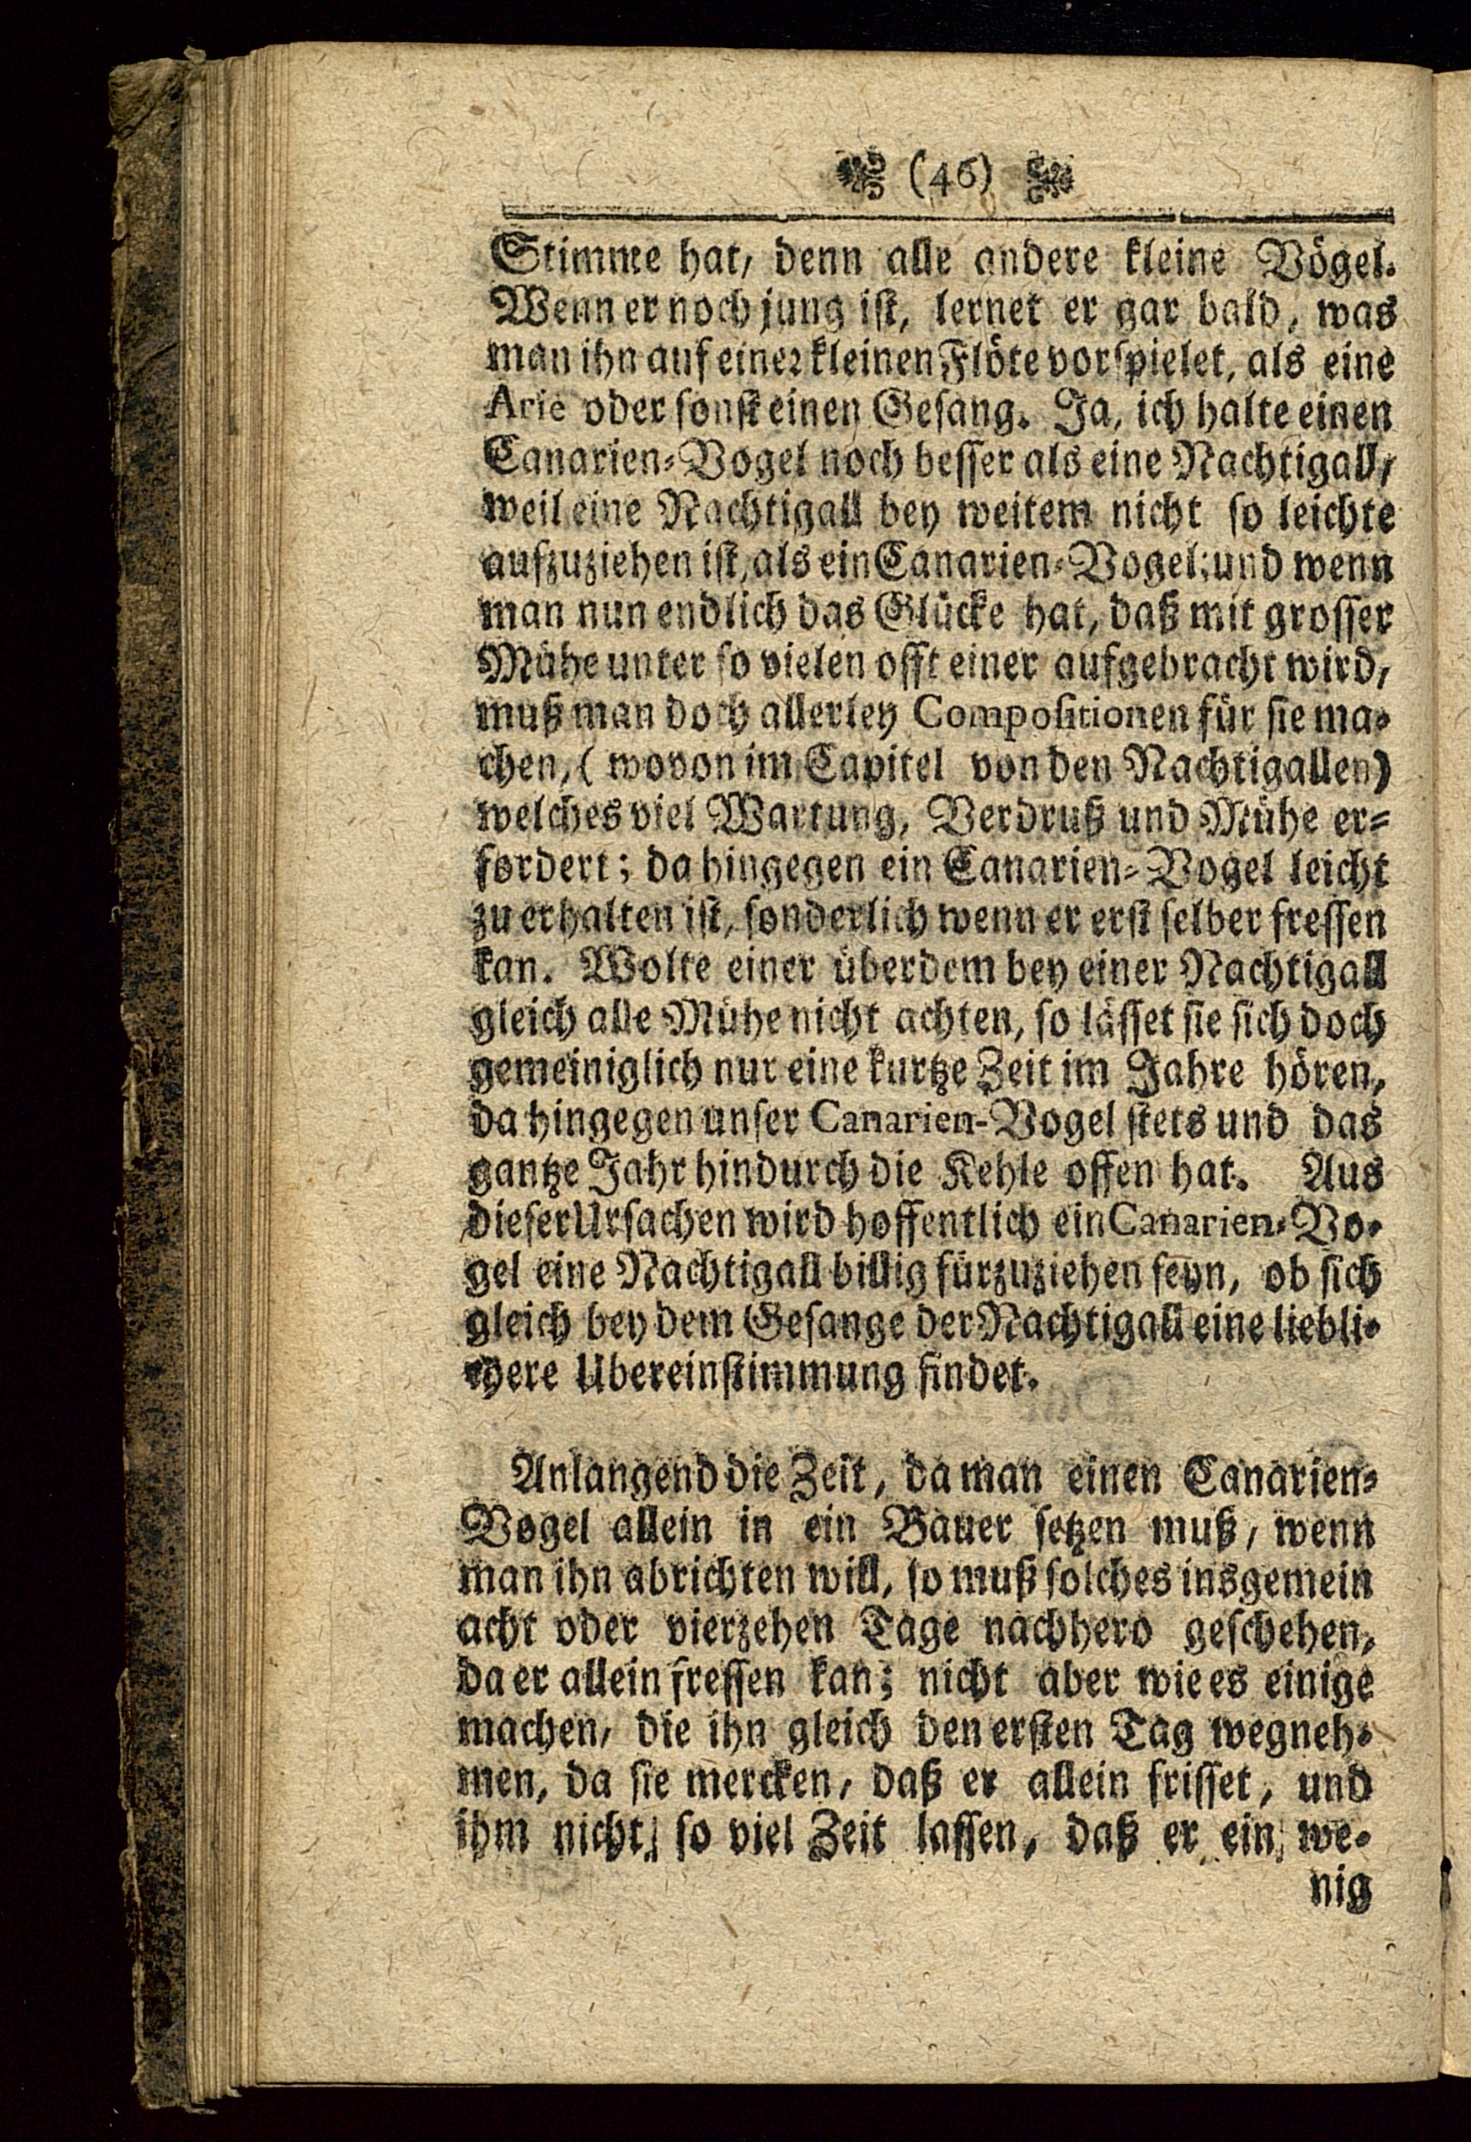 (46)
Stimme hat, denn alle andere kleine Vögel.
Wenn er noch jung ist, lernet er gar bald, was
man ihn auf einer kleinen Flöte vorspielet, als eine
Arie oder sonst einen Gesang. Ja, ich halte einen
Canarien-Vogel noch besser als eine Nachtigall,
weil eine Nachtigall bey weitem nicht so leichte
aufzuziehen ist, als ein Canarien-Vogel; und wenn
man nun endlich das Glücke hat, daß mit grosser
Mühe unter so vielen offt einer aufgebracht wird,
muß man doch allerley Compositionen für sie ma-
chen, (wovon im Capitel von den Nachtigallen)
welches viel Wartung, Verdruß und Mühe er-
fordert; da hingegen ein Canarien-Vogel leicht
zu erhalten ist, sonderlich wenn er erst selber fressen
kan. Wolte einer überdem bey einer Nachtigall
gleich alle Mühe nicht achten, so lässet sie sich doch
gemeiniglich nur eine kurtze Zeit im Jahre hören,
da hingegen unser Canarien-Vogel stets und das
gantze Jahr hindurch die Kehle offen hat. Aus
dieser Ursachen wird hoffentlich ein Canarien-Vo-
gel eine Nachtigall billig fürzuziehen seyn, ob sich
gleich bey dem Gesange der Nachtigall eine liebli-
chere Ubereinstimmung findet.
Anlangend die Zeit, da man einen Canarien-
Vogel allein in ein Bauer setzen muß, wenn
man ihn abrichten will, so muß solches insgemein
acht oder vierzehen Tage nachhero geschehen,
da er allein fressen kan; nicht aber wie es einige
machen, die ihn gleich den ersten Tag wegneh-
men, da sie mercken, daß er allein frisset, und
ihm nicht so viel Zeit lassen, daß er ein we-
nig